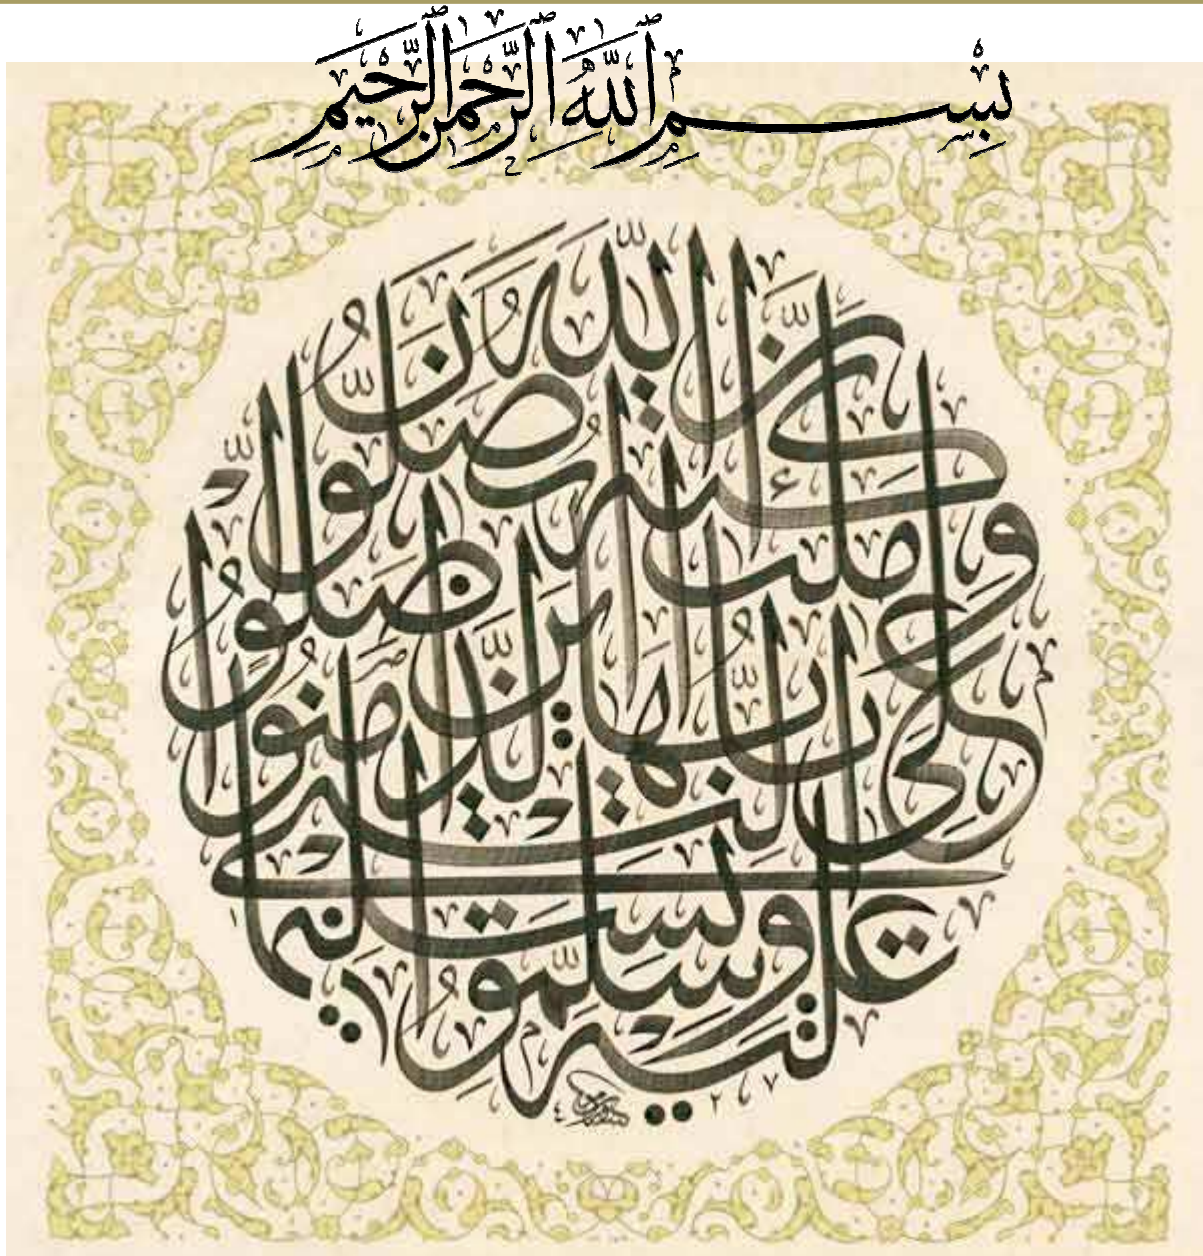 بِسْمِ ٱللَّهِ ٱلرَّحْمَٰنِ ٱلرَّحِيمِ
إن الله وملئكته يصلون على النبي يأيها الذين ءامنوا صلوا عليه وسلموا تسليما